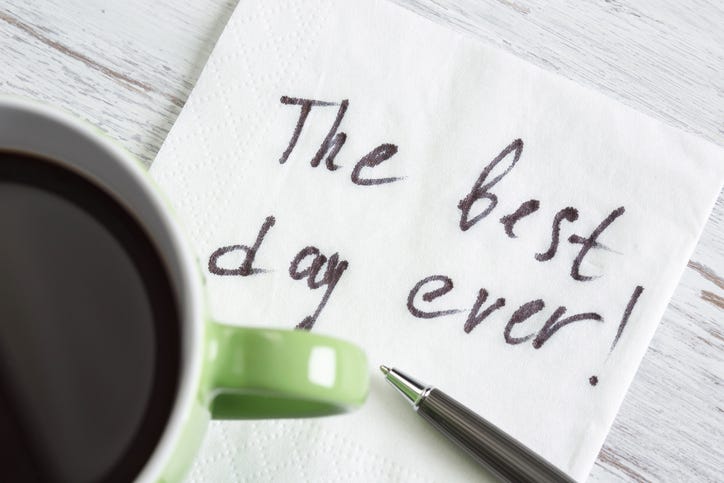 The best
day ever!